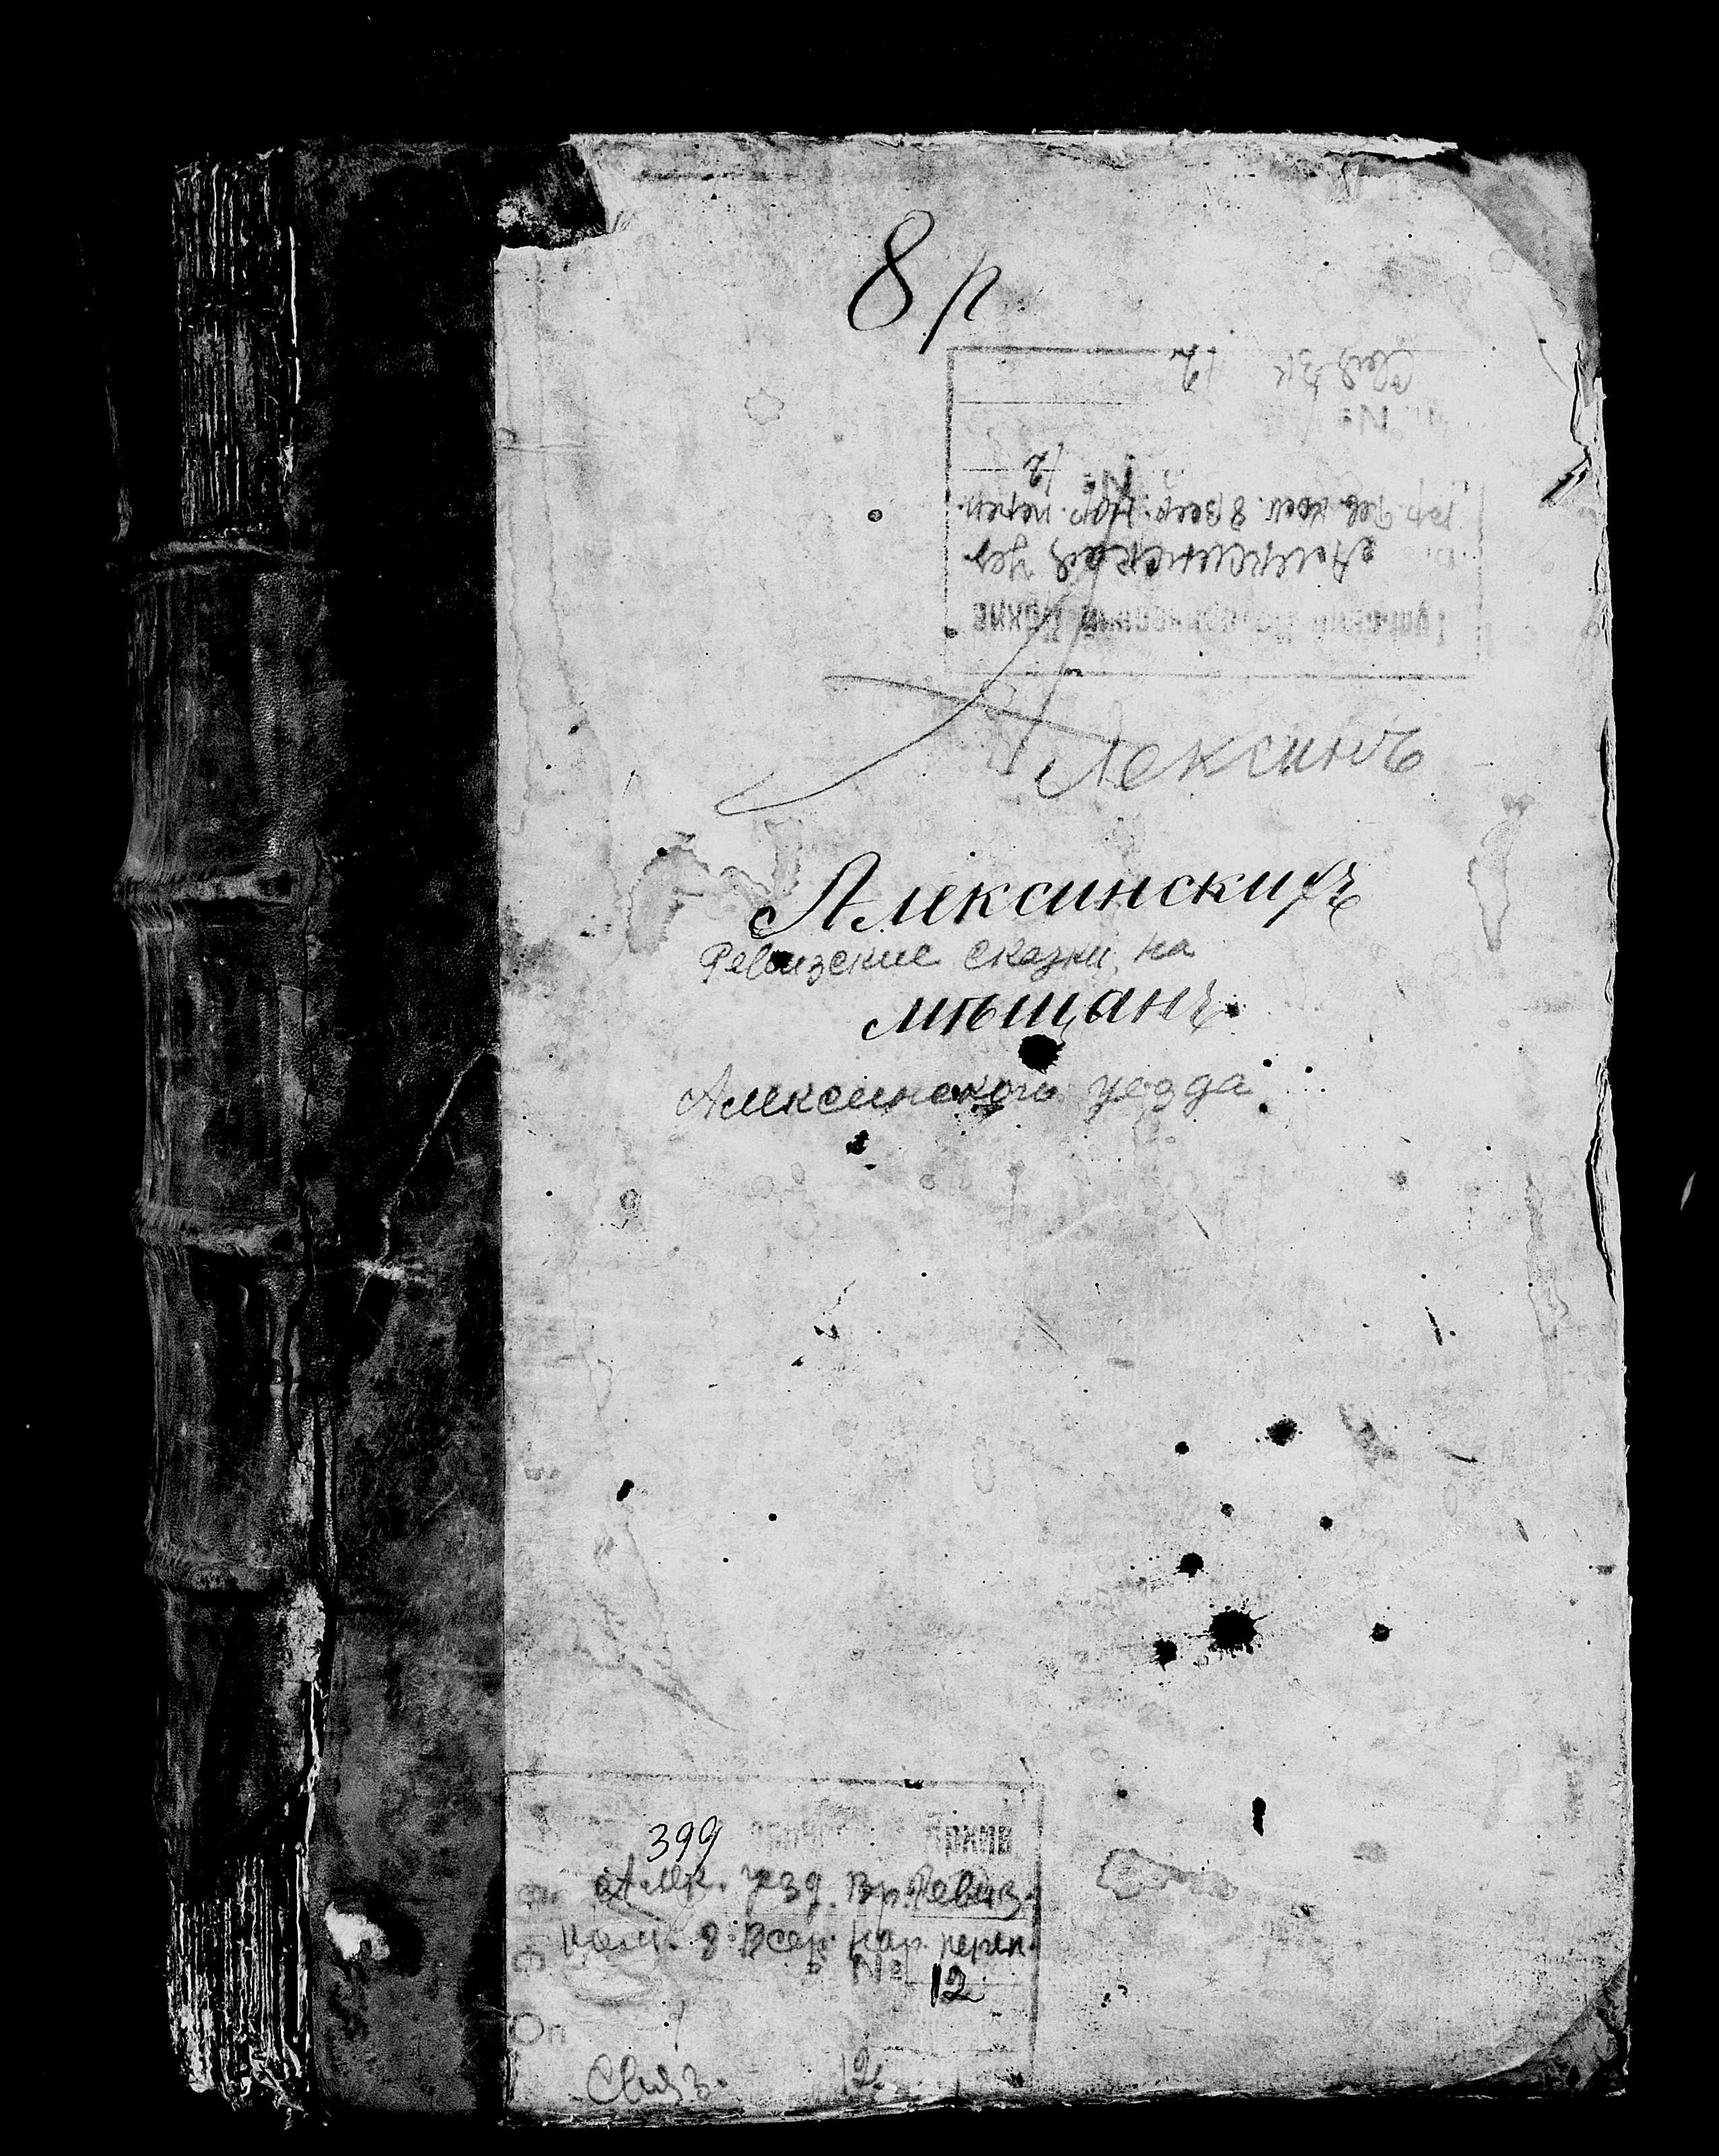 8 р
Связк 12
№
№ 12
Вр. Рев. ком. 8 Всер. нар. переп.
Алексинская уез
Тульский Архив
Алексинъ
Алексинскихъ
Ревизские сказки на
мѣщанъ
Алексинского уезда
399
Архив
Алек. уезд. Вр. Ревиз.
ком. 8 Всер. нар. переп.
№ 12
Оп
Связ. 12